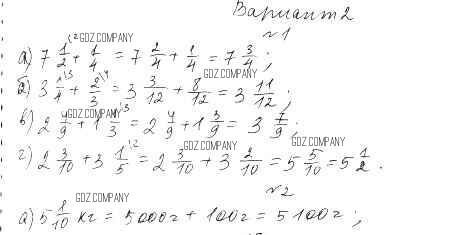 Вариант 2
№1
а) 7 1/2 + 1/4 = 7 2/4 + 1/4 = 7 3/4 ;
б) 3 1/4 + 2/3 = 3 3/12 + 8/12 = 3 11/12 ;
в) 2 4/9 + 1 1/3 = 2 4/9 + 1 3/9 = 3 7/9 ;
г) 2 3/10 + 3 1/5 = 2 3/10 + 3 2/10 = 5 5/10 = 5 1/2 .
№2
а) 5 1/10 кг = 5000г + 100г = 5100г ;
GDZ.COMPANY
GDZ.COMPANY
GDZ.COMPANY
GDZ.COMPANY
GDZ.COMPANY
GDZ.COMPANY